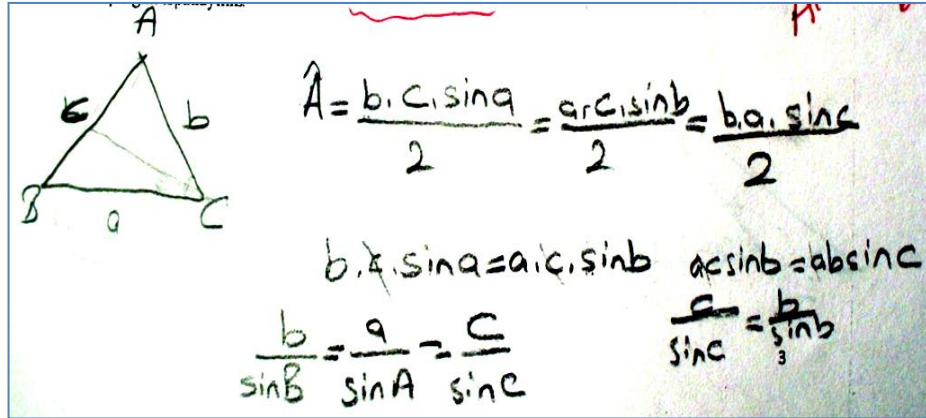 A
c b
B a C
Â = b.c.sina/2 = a.c.sinb/2 = b.a.sinc/2
b.c.sina = a.c.sinb acsinb = absinc
c/sinc = b/sinb
3
b/sinB = a/sinA = c/sinC